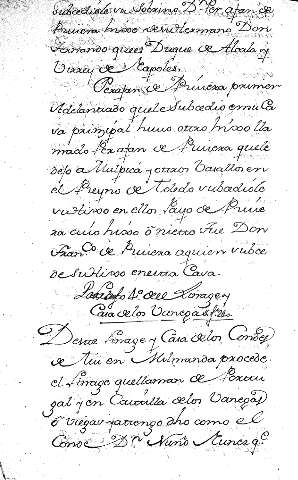 subcediole su sobrino Dn Perafan de
Rivera hixo de su Hermano Don
Fernando que es Duque de Alcala y
Virrey de Napoles.
Perafan de Rivera primer
Adelantado que le subcedio en su Ca
sa principal huvo otro hixo lla
mado Perafan de Rivera que le
dexo a Malpica y otros Vasallos en
el Reyno de Toledo subcediole
su Hixo en ellos Payo de Rive
ra cuio hixo ō nieto fue Don
Franco de Rivera a quien subce
de su Hixo en esta Casa.
Linage y
Casa de los Vanegas
Deste Linage y Casa de los Condes
de Tui en Milmanda procede
el Linage que llaman de Portu
gal y en Castilla de los Vanegas
ō Viegas ya tengo dho como el
Conde Dn Nuño Nunez qe